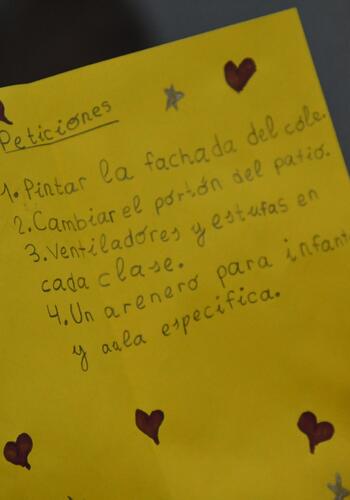 Peticiones
1. Pintar la fachada del cole.
2. Cambiar el portón del patio.
3. Ventiladores y estufas en
cada clase.
4. Un arenero para infant
y aula especifica.